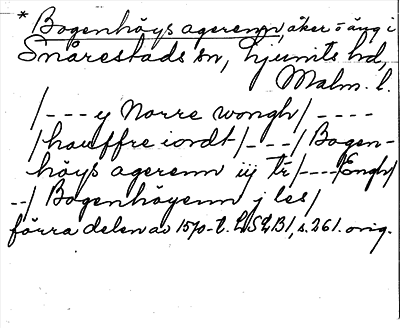 * Bogenhöys agerenn, åker o äng i
Snårestads sn, Ljunits hd,
Malm. l.
/--- y Norre wongh/ ----
/hauffre iordt/---/Bogen-
höys agerenn iij tr/---/Engh/
--/ Bogenhöyenn j les/
förra delen av 1570-t. LSLB1, s. 261. orig.